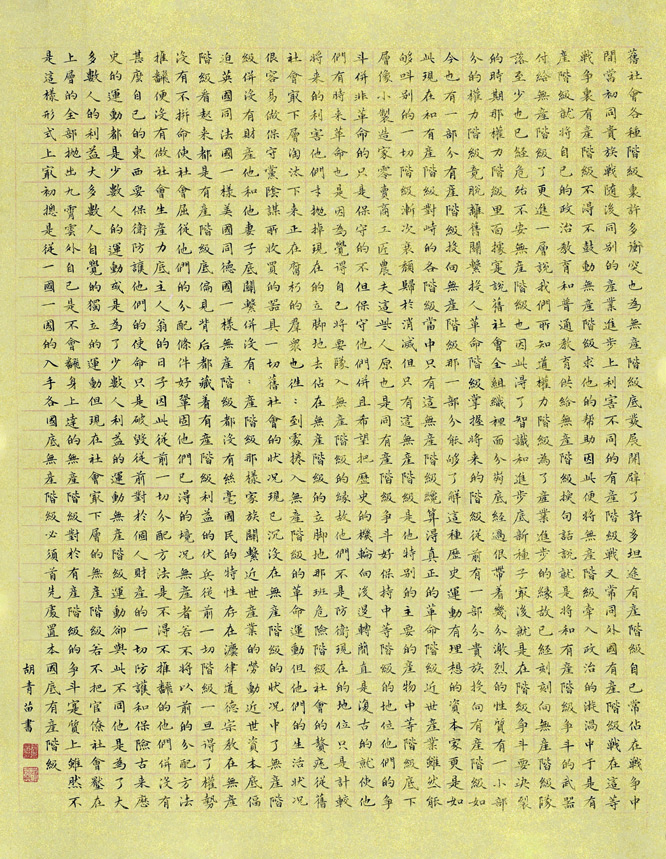 舊社會各種階級裏許多衝突也為無產階級底發展開闢了許多坦途有產階級自己常佔在戰爭中
間當初同貴族戰隨後同別的產業進步上利害不同的有產階級戰又常同外國有產階級戰在這等
戰爭裏有產階級不得不鼓動無產階級求他的幫助因此便將無產階級牽入政治的漩渦中于是有
產階級就將自己的政治教育和普通教育供給無產階級換句話說就是將和有產階級爭斗的武器
付給無產階級了更進一層說我們所知道權力階級為了產業進步的緣故已經刻刻向無產階級隊
落至少也已經危殆不安無產階級也因此得了智識和進步底新種子最後就是在階級爭斗要決裂
的時期那權力階級里面據實說舊社會全組織裡面分崩底經過很帶著幾分激烈的性質有一小部
分的權力階級竟脫離舊關繫投入革命階級掌握將來的階級從前有一部分貴族投向有產階級如
今也有一部分有產階級投向無產階級那一部分能够了解這種歷史運動有理想的資本家更是如
此現在和有產階級對峙的各階級當中只有這無產階級纔算得真正的革命階級近世產業雖然能
够叫別的一切階級漸次衰頹歸於消滅但只有無產階級是他特別的主要的產物中等階級底下
層像小製造家零賣商工匠農夫這些人原也是同有產階級爭斗好保持中等階級的地位他們的爭
斗併非革命的只是保守的不但保守他們併且希望把歷史的機輪向後逆轉簡直是復古的就使他
們有時來革命也是因為覺得自己將要墜入無產階級的緣故他們不是防衛現在的地位只是計較
將來的利害他們才拋掉現在的立脚地去佔在無產階級的立脚地那班危險階級社會的贅疣從舊
社會最下層淘汰下來正在腐朽的羣衆也往:到處捲入無產階級的革命運動但他們的生活狀況
很容易做保守黨陰謀所收買的器具一切舊社會的狀況現已沉没在無產階級的狀況中了無產階
級併沒有財產他和他妻子底關繫併沒有:產階級那樣家族關繫近世產業的勞動近世資本底偪
迫英國同法國一樣美國同德國一樣無產階級都沒有然毫國民的特性存在灋律道德宗教在無產
階級看起來都是有產階級底偏見背後都藏着有產階級利益的伏兵從前一切階級一旦得了權勢
没有不拼命使社會屈從他們的分配條件好鞏固他們已得的境況無產者若不將以前的分配方法
推翻便没有做社會生產力底主人翁的日子因此從前一切分配方法是不得不推翻的他們併沒有
甚麽自己的東西要保衛防護他們的使命只是破毀從前對於個人財產的一切防護和保險古來歷
史的運動都是少數人的運動或是為了少數人利益的運動無產階級運動卻與此不同他是為了大
多數人的利益大多數人自覺的獨立的運動但現在社會最下層的無產階級若不把官僚社會壓在
上層的全部拋出九霄雲外自己是不會翻身上達的無產階級對於有產階級的爭斗實質上雖然不
是這樣形式上最初摠是從一國一國的入手各國底無產階級必須首先處置本國底有產階級
胡青苗書